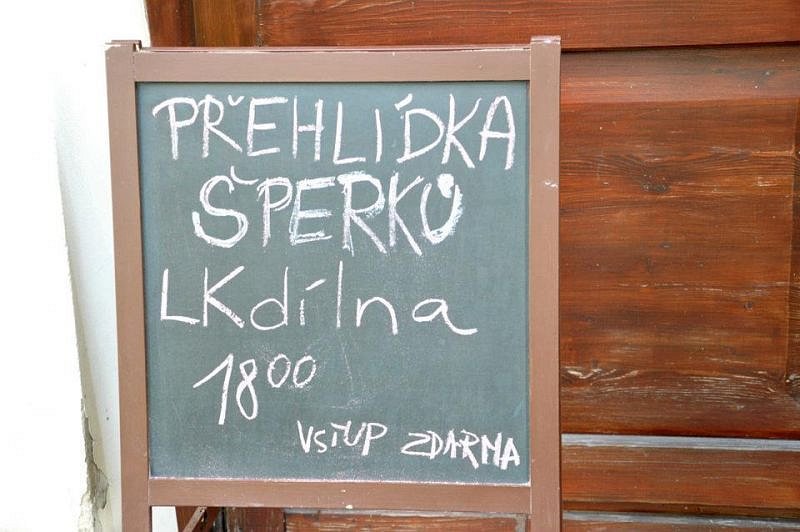 PŘEHLÍDKA
ŠPERKŮ
LKdílna
18⁰⁰
VSTUP ZDARMA